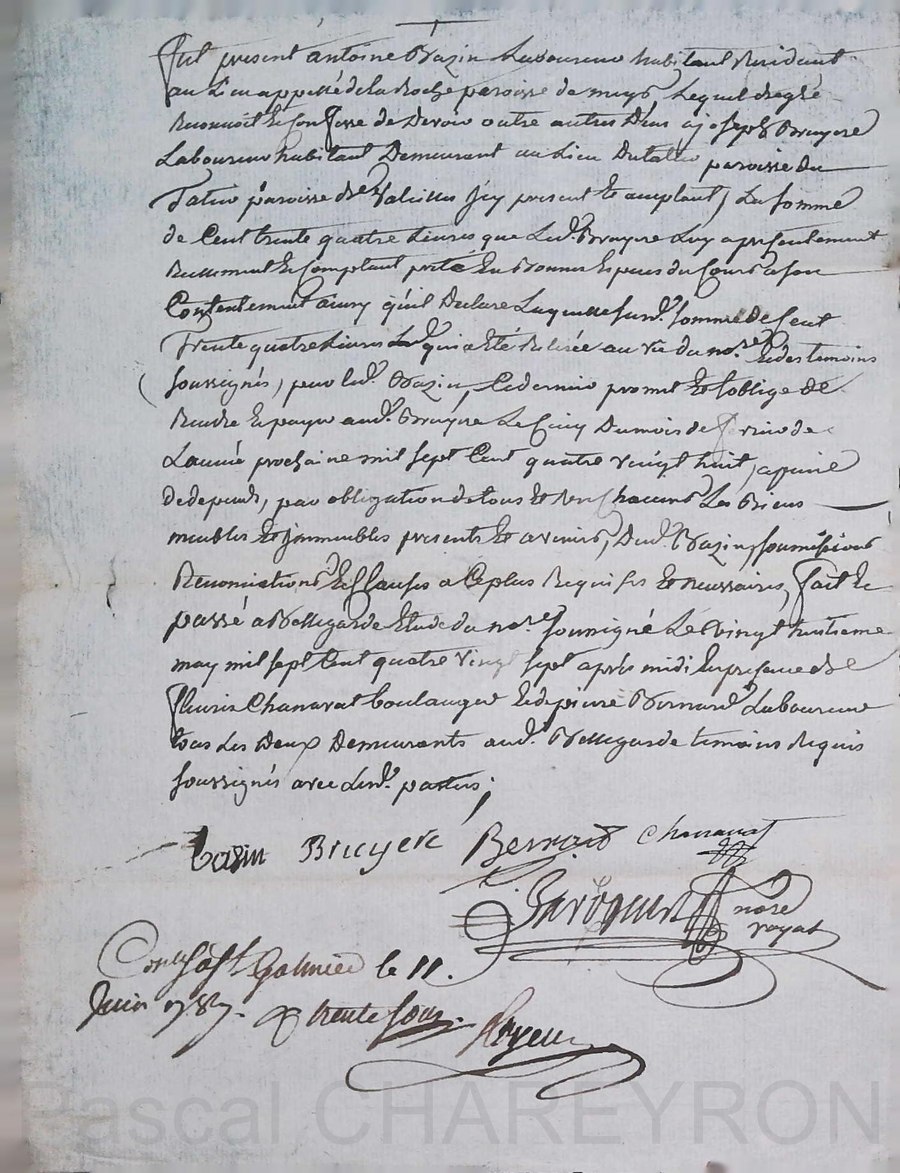 fut présent antoine Bazin Laboureur habitant Residant
au Lieu appellé de la Roche paroisse de meys Lequel de gré
Reconnoit Et Confesse de Devoir a joseph Bruyere
Laboureur habitant Demeurant au Lieu paroisse du
paroisse de jcy present Et acceptant, La somme
de Cent trente quatre Livres que Led. Bruyere Luy a presentement
Et Comptant En Bonnes Especes du Cours a son
Contentement ainsy qu'il Declare Laquelle susd. somme de Cent
Trente quatre Livres qui a Eté Retirée au vu du nore. Et des temoins
soussignés, pour led. Bazin, Ce dernier promet Et s'oblige de
Rendre Et payer aud. Bruyere Le Cinq Du mois de de
L'année prochaine mil sept Cent quatre vingt huit, a peine
de depends, par obligation de tous Et un Chacuns Ses Biens
meubles Et jmmeubles presents Et avenirs, Dud. Bazin, soumissions
Renonciations Et Clauses a Ce plus Requises Et necessaires, fait Et
passé a Bellegarde Etude du nore. soussigné Le vingt huitieme
may mil sept Cent quatre vingt sept après midi En presence de
fleurie Chanavat boulanger Et de pierre Bernard Laboureur
tous Les Deux Demeurants aud. Bellegarde temoins Requis
soussignés avec Lesd. parties;
bazin Bruyere Bernard Chanavat
nore
royal
Conlé à St Galmier le 11.
Juin 1787. R trente sous.
Pascal CHAREYRON